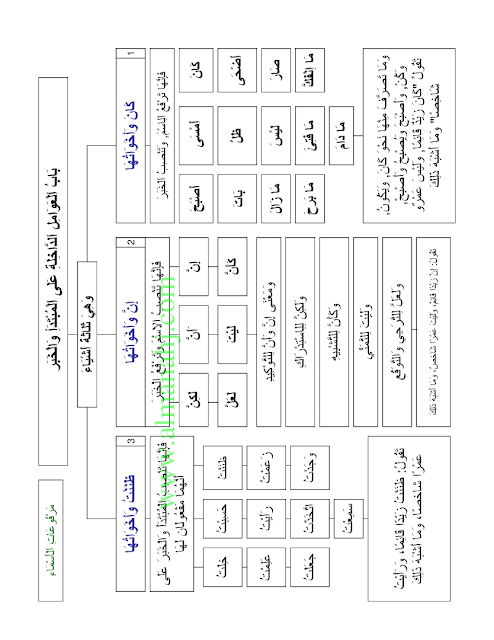 مَرْفُوعَاتِ الْأَسْمَاءِ
بَابُ الْعَوَامِلِ الدَّاخِلَةِ عَلَى الْمُبْتَدَإِ وَالْخَبَرِ
وَهِيَ ثَلَاثَةُ أَشْيَاءَ
1
كَانَ وَأَخَوَاتُهَا
فَإِنَّهَا تَرْفَعُ الِاسْمَ, وَتَنْصِبُ الْخَبَرَ
كَانَ
أَمْسَى
أَصْبَحَ
أَضْحَى
ظَلَّ
بَاتَ
صَارَ
لَيْسَ
مَا زَالَ
مَا اِنْفَكَّ
مَا فَتِئَ
مَا بَرِحَ
مَا دَامَ
وَمَا تَصَرَّفَ مِنْهَا نَحْوَ كَانَ, وَيَكُونُ,
وَكُنْ, وَأَصْبَحَ وَيُصْبِحُ وَأَصْبِحْ,
تَقُولُ "كَانَ زَيْدٌ قَائِمًا, وَلَيْسَ عَمْرٌو
شَاخِصًا" وَمَا أَشْبَهَ ذَلِكَ
2
إِنَّ وَأَخَوَاتُهَا
فَإِنَّهَا تَنْصِبُ الِاسْمَ وَتَرْفَعُ الْخَبَرَ
إِنَّ
أَنَّ
لَكِنَّ
كَأَنَّ
لَيْتَ
لَعَلَّ
وَمَعْنَى إِنَّ وَأَنَّ لِلتَّوْكِيدِ
وَلَكِنَّ لِلِاسْتِدْرَاكِ
وَكَأَنَّ لِلتَّشْبِيهِ
وَلَيْتَ لِلتَّمَنِّي
وَلَعَلَّ لِلتَّرَجِي وَالتَّوَقُعِ
تَقُولُ: إِنَّ زَيْدًا قَائِمٌ, وَلَيْتَ عَمْرًا شَاخِصٌ, وَمَا أَشْبَهَ ذَلِكَ
3
ظَنَنْتُ وَأَخَوَاتُهَا
فَإِنَّهَا تَنْصِبُ الْمُبْتَدَأَ وَالْخَبَرَ عَلَى
أَنَّهُمَا مَفْعُولَانِ لَهَا
ظَنَنْتُ
حَسِبْتُ
خِلْتُ
زَعَمْتُ
رَأَيْتُ
عَلِمْتُ
وَجَدْتُ
اِتَّخَذْتُ
جَعَلْتُ
سَمِعْتُ
تَقُولُ: ظَنَنْتُ زَيْدًا قَائِمًا, وَرَأَيْتُ
عَمْرًا شَاخِصًا, وَمَا أَشْبَهَ ذَلِكَ
www.almanahj.com